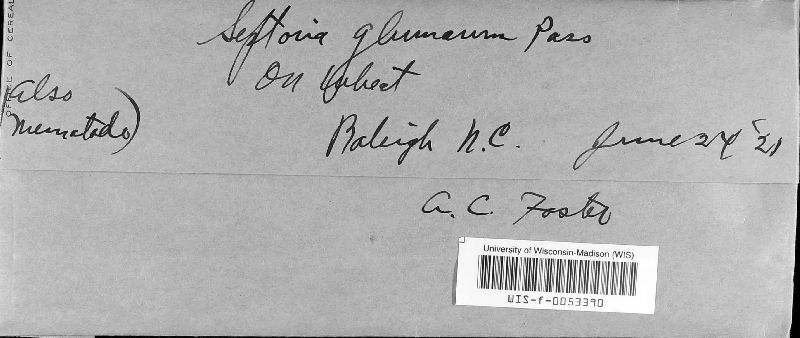 OFFICE OF CEREAL
Septoria glumarum Pass
On Wheat
Also
Nematode)
Raleigh N.C. June 24 '21
A. C. Foster
University of Wisconsin-Madison (WIS)
WIS-f-0053390